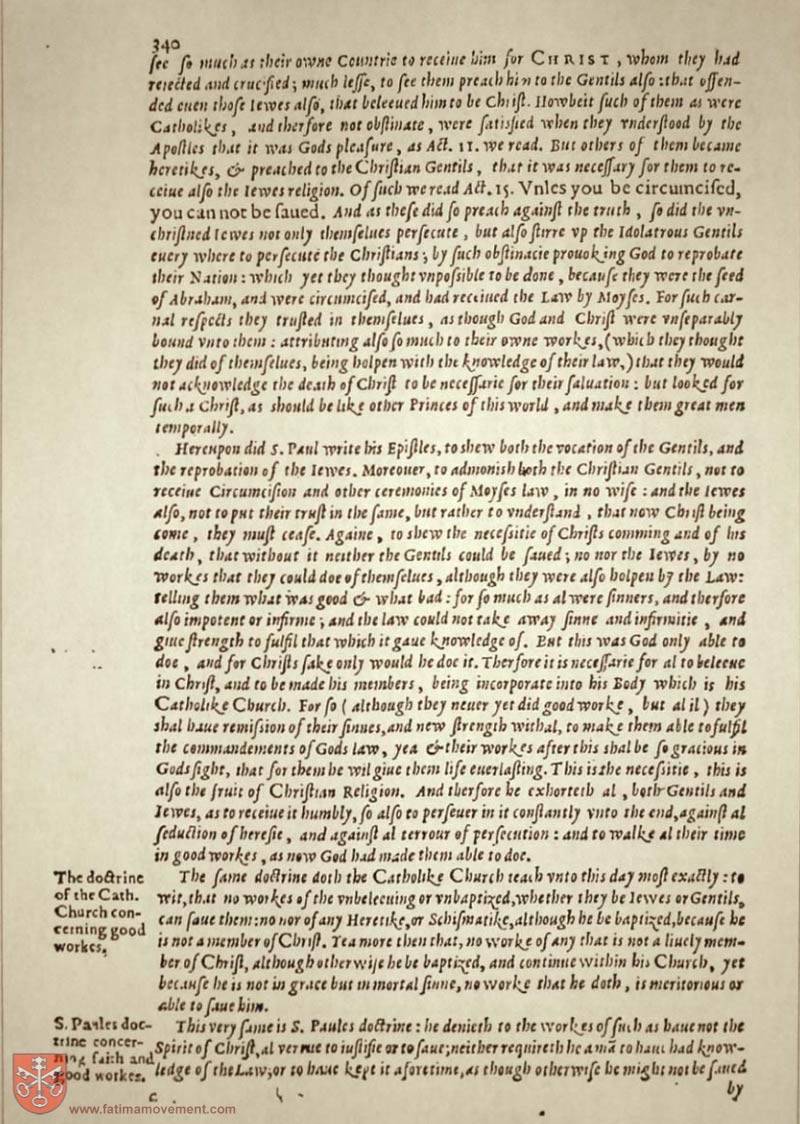 340
see so much as their owne Countrie to receiue him for CHRIST, whom they had
reiected and crucified; much lesse, to see them preach him to the Gentils also: that offen-
ded euen those Iewes also, that beleeued him to be Christ. Howbeit such of them as were
Catholikes, and therfore not obstinate, were satisfied when they vnderstood by the
Apostles that it was Gods pleasure, as Act. 11. we read. But others of them became
heretikes, & preached to the Christian Gentils, that it was necessary for them to re-
ceiue also the Iewes religion. Of such we read Act. 15. Vnles you be circumcised,
you can not be saued. And as these did so preach against the truth, so did the vn-
christned Iewes not only themselues persecute, but also stirre vp the Idolatrous Gentils
euery where to persecute the Christians; by such obstinacie prouoking God to reprobate
their Nation: which yet they thought vnpossible to be done, because they were the seed
of Abraham, and were circumcised, and had receiued the Law by Moyses. For such car-
nal respects they trusted in themselues, as though God and Christ were vnseparably
bound vnto them: attributing also so much to their owne workes, (which they thought
they did of themselues, being holpen with the knowledge of their law,) that they would
not acknowledge the death of Christ to be necessarie for their saluation: but looked for
such a Christ, as should be like other Princes of this world, and make them great men
temporally.
Hereupon did S. Paul write his Epistles, to shew both the vocation of the Gentils, and
the reprobation of the Iewes. Moreouer, to admonish both the Christian Gentils, not to
receiue Circumcision and other ceremonies of Moyses law, in no wise: and the Iewes
also, not to put their trust in the same, but rather to vnderstand, that now Christ being
come, they must cease. Againe, to shew the necessitie of Christs comming and of his
death, that without it neither the Gentils could be saued; no nor the Iewes, by no
workes that they could doe of themselues, although they were also holpen by the Law:
telling them what was good & what bad: for so much as al were sinners, and therfore
also impotent or infirme; and the law could not take away sinne and infirmitie, and
giue strength to fulfil that which it gaue knowledge of. But this was God only able to
doe, and for Christs sake only would he doe it. Therfore it is necessarie for al to beleeue
in Christ, and to be made his members, being incorporate into his Body which is his
Catholike Church. For so (although they neuer yet did good worke, but al il) they
shal haue remission of their sinnes, and new strength withal, to make them able to fulfil
the commandements of Gods law, yea & their workes after this shal be so gracious in
Gods sight, that for them he wil giue them life euerlasting. This is the necessitie, this is
also the fruit of Christian Religion. And therfore he exhorteth al, both Gentils and
Iewes, as to receiue it humbly, so also to perseuer in it constantly vnto the end, against al
seduction of heresie, and against al terrour of persecution: and to walke al their time
in good workes, as now God had made them able to doe.
The doctrine
of the Cath.
Church con-
cerning good
workes.
The same doctrine doth the Catholike Church teach vnto this day most exactly: to
wit, that no workes of the vnbeleeuing or vnbaptized, whether they be Iewes or Gentils,
can saue them: no nor of any Heretike, or Schismatike, although he be baptized, because he
is not a member of Christ. Yea more then that, no worke of any that is not a liuely mem-
ber of Christ, although otherwise he be baptized, and continue within his Church, yet
because he is not in grace but in mortal sinne, no worke that he doth, is meritorious or
able to saue him.
S. Paules doc-
trine concer-
ning faith and
good workes.
This very same is S. Paules doctrine: he denieth to the workes of such as haue not the
Spirit of Christ, al vertue to iustifie or to saue; neither requireth he a mã to haue had know-
ledge of the Law, or to haue kept it aforetime, as though otherwise he might not be saued
by
www.fatimamovement.com